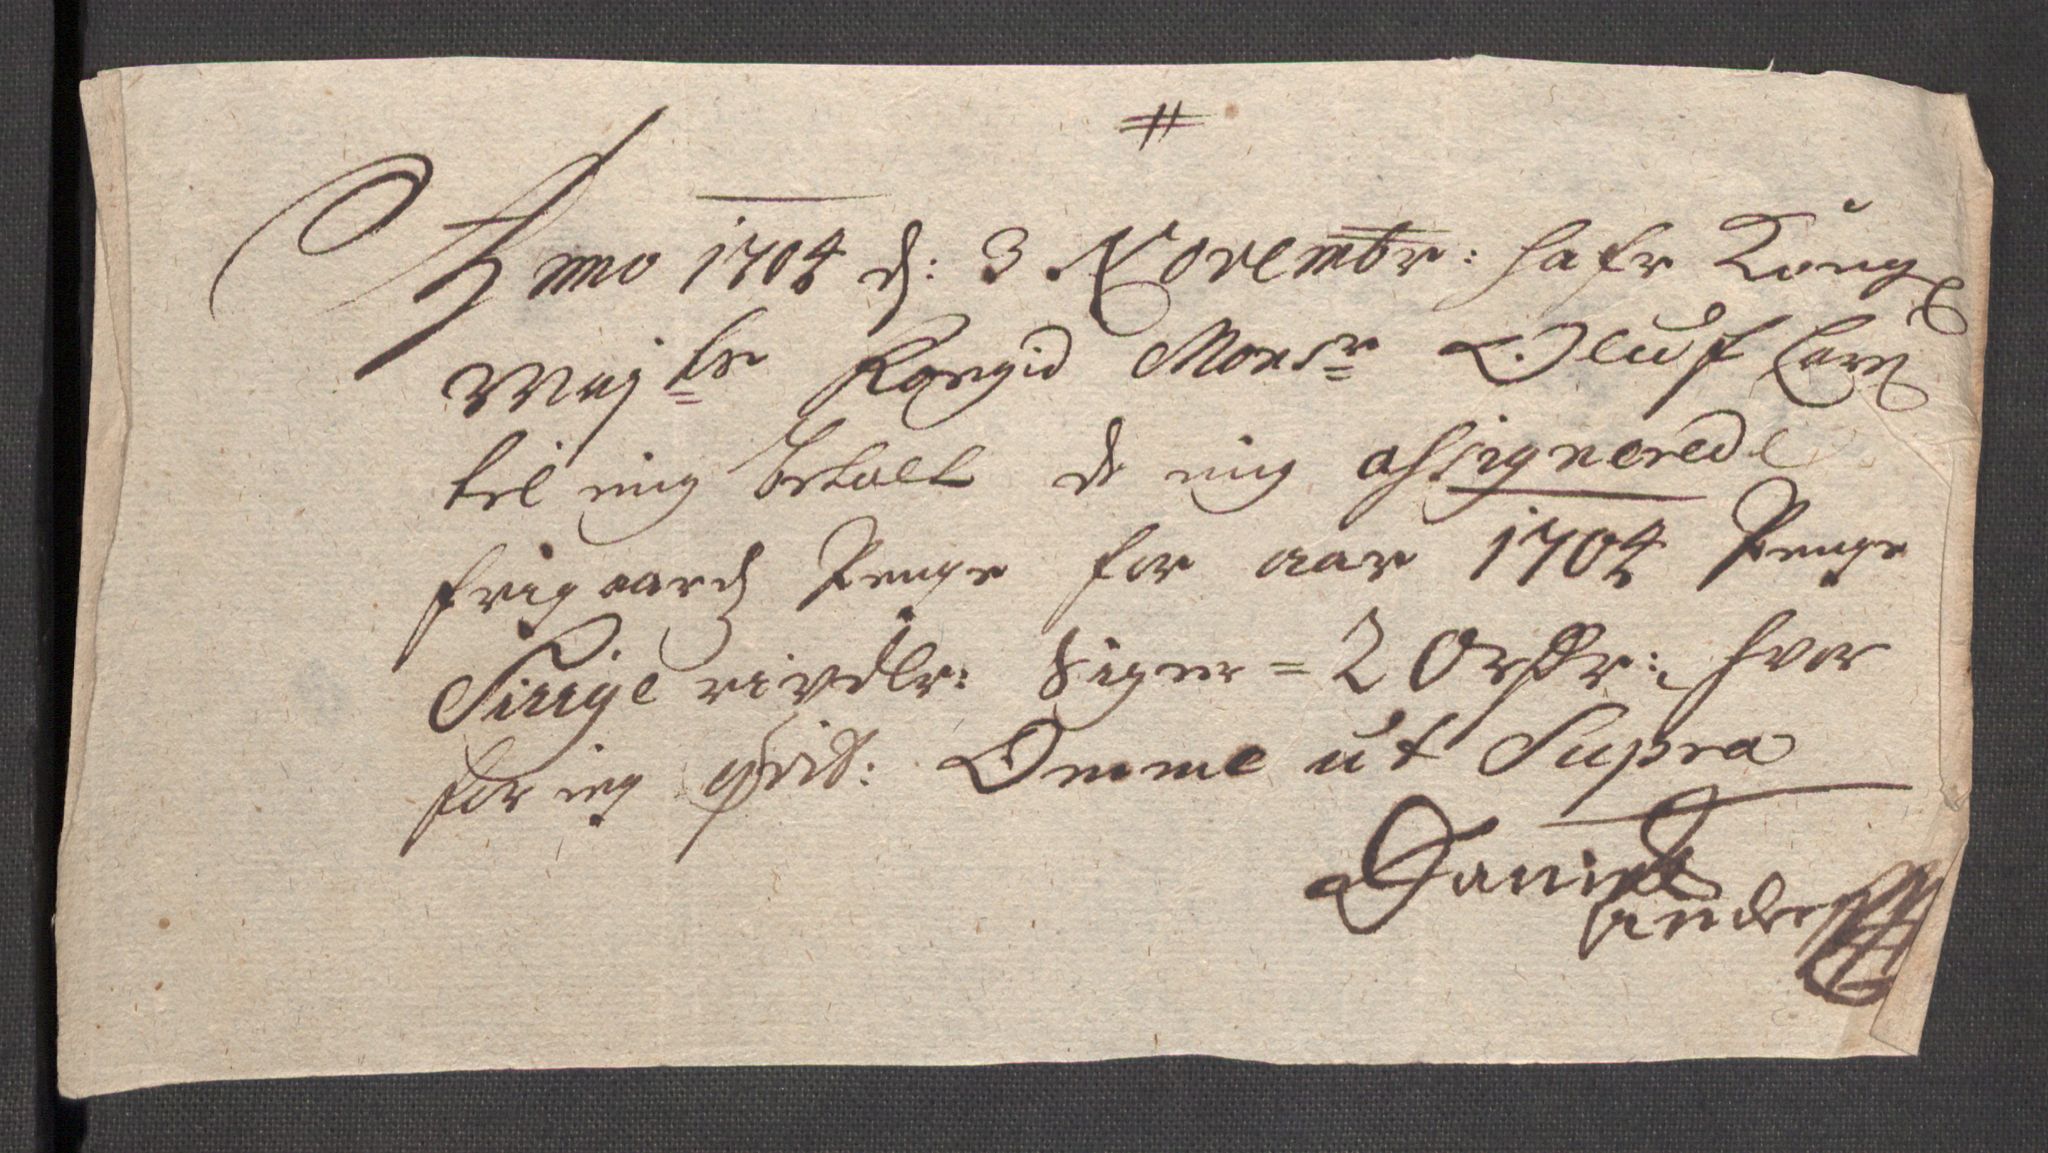 #
Anno 1704 d: 3 Novembr: hafr Kong
Maÿtz Fougid Monsr Oluf
til mig betalt de mig assignerede
frigaards Penge for aar 1704 Penge
Tiuge rixdlr: siger = 20 rdr: hvor
for ieg qvit: Omme ut Supra
Daniel
Anders